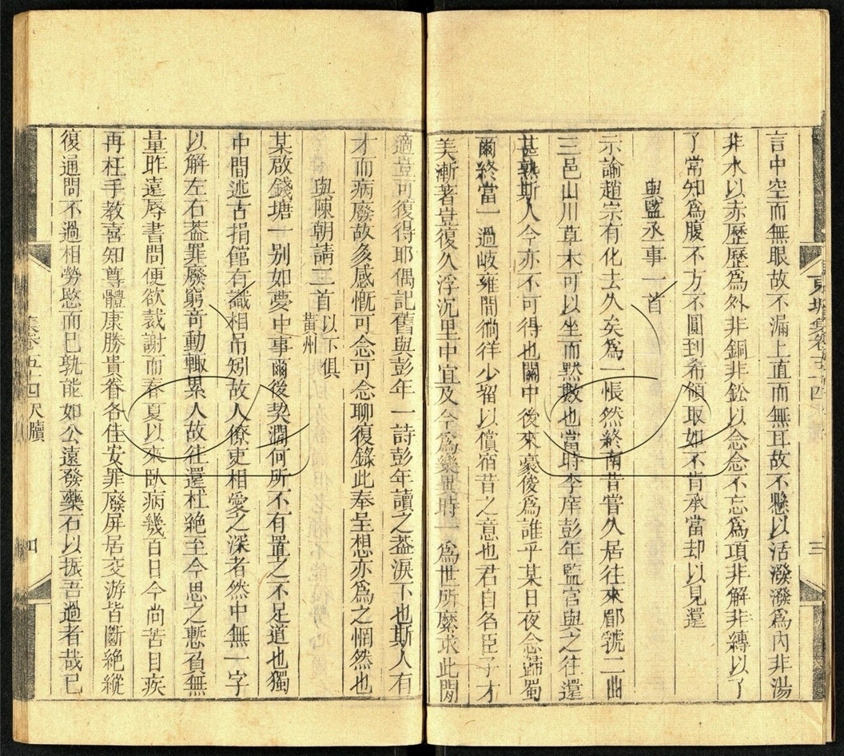 言中空而無眼故不漏上直而無耳故不懸以活潑潑為內非湯
非水以赤歷歷為外非銅非鉛以念念不忘為項非解非縳以了
了常知為腹不方不圓到希領取如不肯承當却以見還
與監丞事一首
示諭趙宗有化去久矣為一悵然終南昔嘗久居往來郿虢二曲
三邑山川草木可以坐而默數也當時李庠彭年監官與之往還
甚熟斯人今亦不可得也關中後來豪俊為誰乎某日夜念歸蜀
爾終當一過岐雍間徜徉少留以償宿昔之意也君自名臣子才
美漸著豈復久浮沉里中宜及今為樂異時一為世所縻求此閒
適豈可復得耶偶記舊與彭年一詩彭年讀之葢淚下也斯人有
才而病廢故多感慨可念可念聊復錄此奉呈想亦為之惘然也
與陳朝請二首以下俱黃州
某啟錢塘一别如夢中事爾後契濶何所不有置之不足道也獨
中間述古捐館有識相弔矧故人僚吏相愛之深者然中無一字
以解左右葢罪廢窮奇動輒累人故往還杜絕至今思之慙負無
量昨遠辱書問便欲裁謝而春夏以來臥病幾百日今尚苦目疾
再枉手教喜知尊體康勝貴眷各佳安罪廢屏居交游皆斷絕縱
復通問不過相勞愍而已孰能如公遠發藥石以振吾過者哉已
集卷五十四 尺牘
四